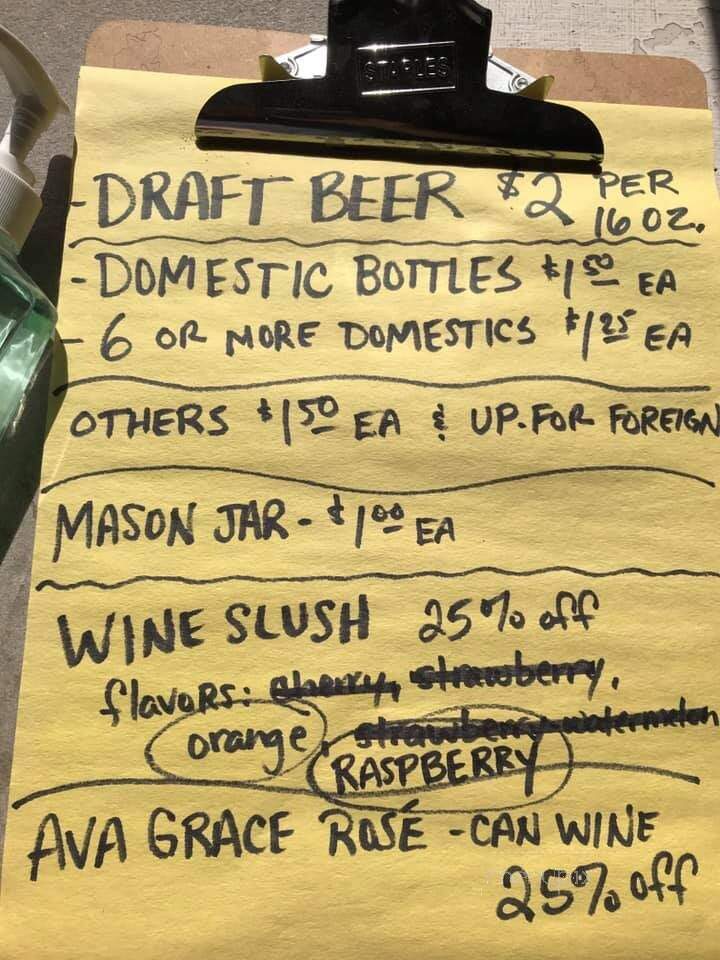 STAPLES
-DRAFT BEER $2 PER 16 OZ.
-DOMESTIC BOTTLES $1 50 EA
- 6 OR MORE DOMESTICS $1 25 EA
OTHERS $1 50 EA & UP. FOR FOREIGN
MASON JAR - $1 00 EA
WINE SLUSH 25% off
flavors: cherry, strawberry,
orange, strawberry-watermelon
RASPBERRY
AVA GRACE ROSÉ - CAN WINE
25% off